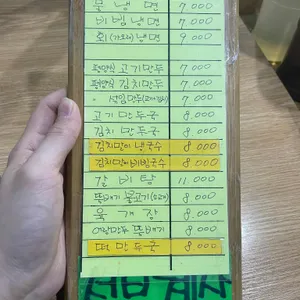 물냉면 7,000
비빔냉면 7,000
회(가오리)냉면 9,000
평양식 고기만두 7,000
평양식 김치만두 7,000
" 섞임만두 7,000
고기만두국 8,000
김치만두국 8,000
김치말이냉국수 8,000
김치말이비빔국수 8,000
갈비탕 11,000
뚝배기 불고기 8,000
육개장 8,000
만두 뚝배기 8,000
떡만두국 8,000
선불 계산